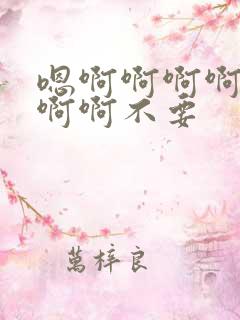 嗯啊啊啊啊
啊啊不要
萬梓良